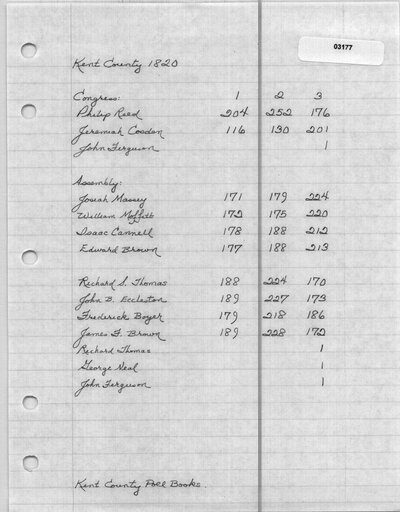 03177
Kent County 1820
Congress: 1 2 3
Philip Reed 204 252 176
Jeremiah Cosden 116 130 201
John Ferguson 1
Assembly:
Josiah Massey 171 179 224
William Moffett 172 175 220
Isaac Cannell 178 188 212
Edward Brown 177 188 213
Richard S. Thomas 188 224 170
John B. Eccleston 189 227 173
Frederick Boyer 179 218 186
James F. Brown 189 228 172
Richard Thomas 1
George Neal 1
John Ferguson 1
Kent County Poll Books.